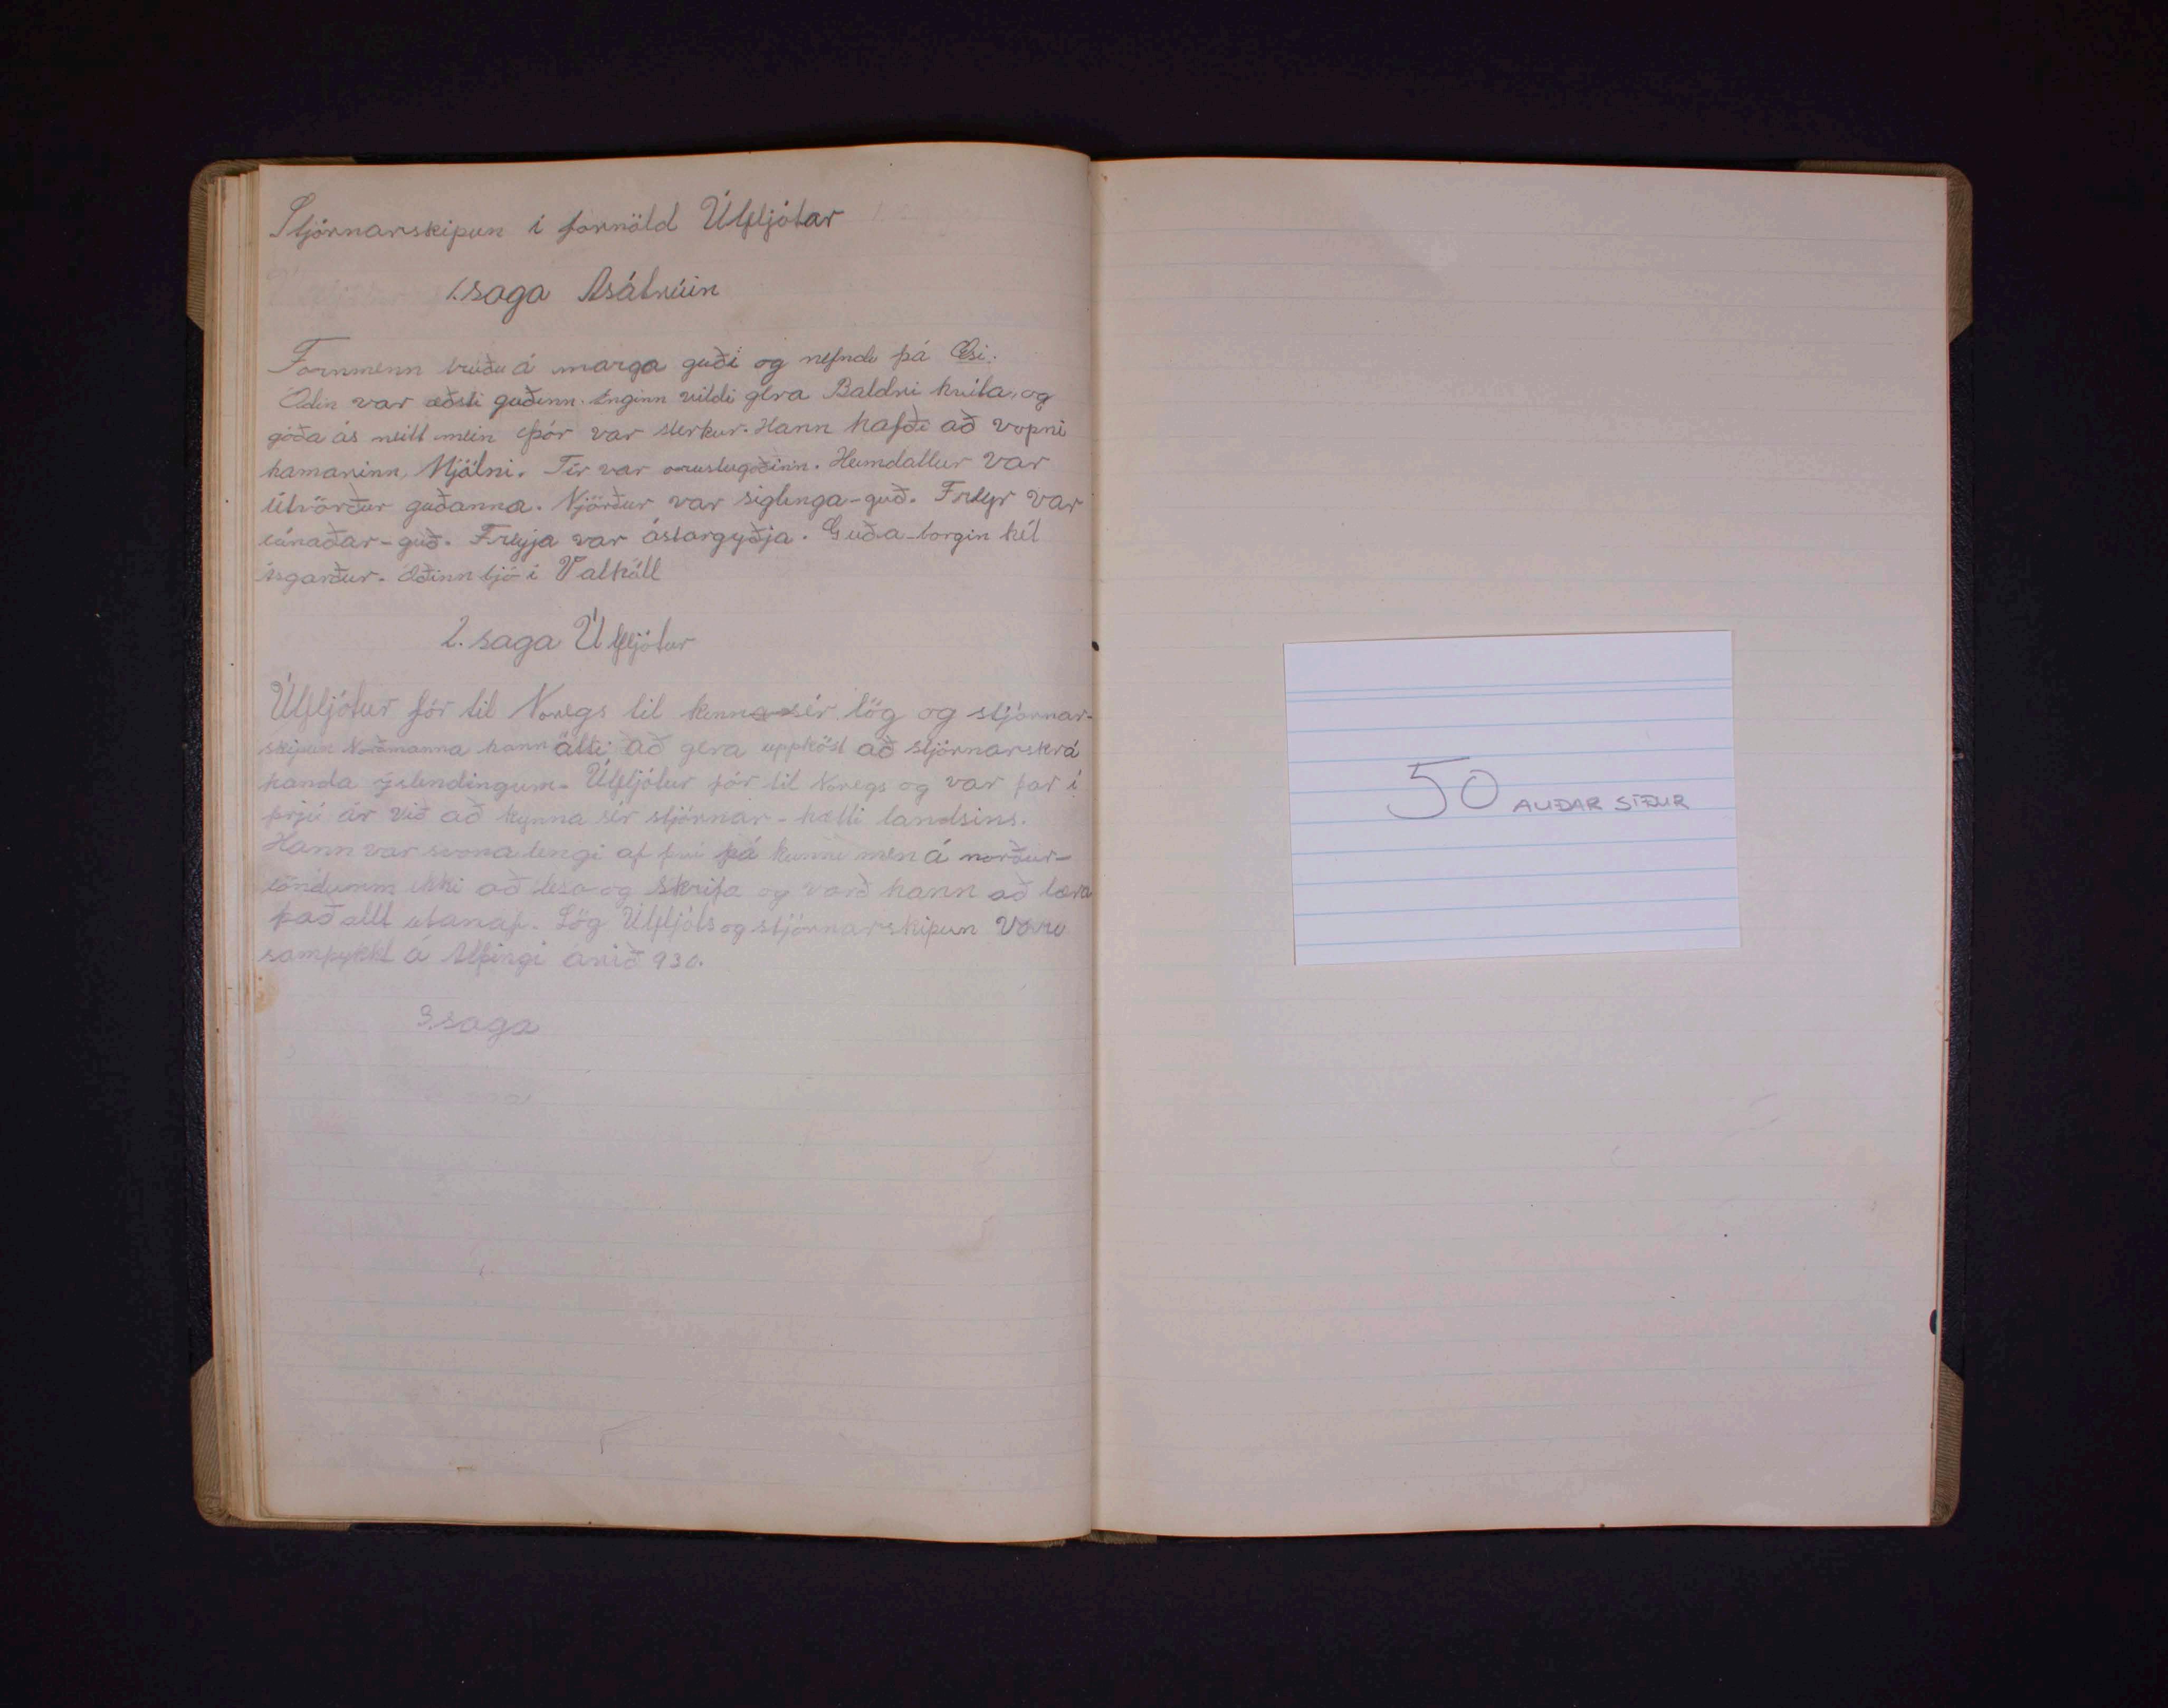 Stjórnarskipun í fornöld Úlfljótar
1. saga Ásatrúin
Fornmenn trúðu á marga guði og nefndu þá Æsi.
Óðin var æðsti guðinn. Enginn vildi gera Baldri hvíta, og
góða ás neitt mein Þór var sterkur. Hann hafði að vopni
hamarinn, Mjölni. Tír var orustugoðinn. Heimdallur var
útvörður guðanna. Njörður var siglinga-guð. Freyr var
ránaðar-guð. Freyja var ástargyðja. Guða-borgin hét
ásgarður. Óðinn bjó í Valhöll
2. saga Úlfljótur
Úlfljótur fór til Noregs til kenna sér lög og stjórnar-
skipun Norðmanna hann átti að gera uppköst að stjórnarskrá
handa íslendingum. Úlfljótur fór til Noregs og var þar í
þrjú ár við að kynna sér stjórnar-hætti landsins.
Hann var svona lengi af því þá kunnu men á norður-
löndunm ekki að lesa og skrifa og varð hann að læra
það allt utanaf. Lög Úlfljóts og stjórnarskipun voru
samþykkt á Alþingi árið 930.
3. saga
50 AUÐAR SÍÐUR